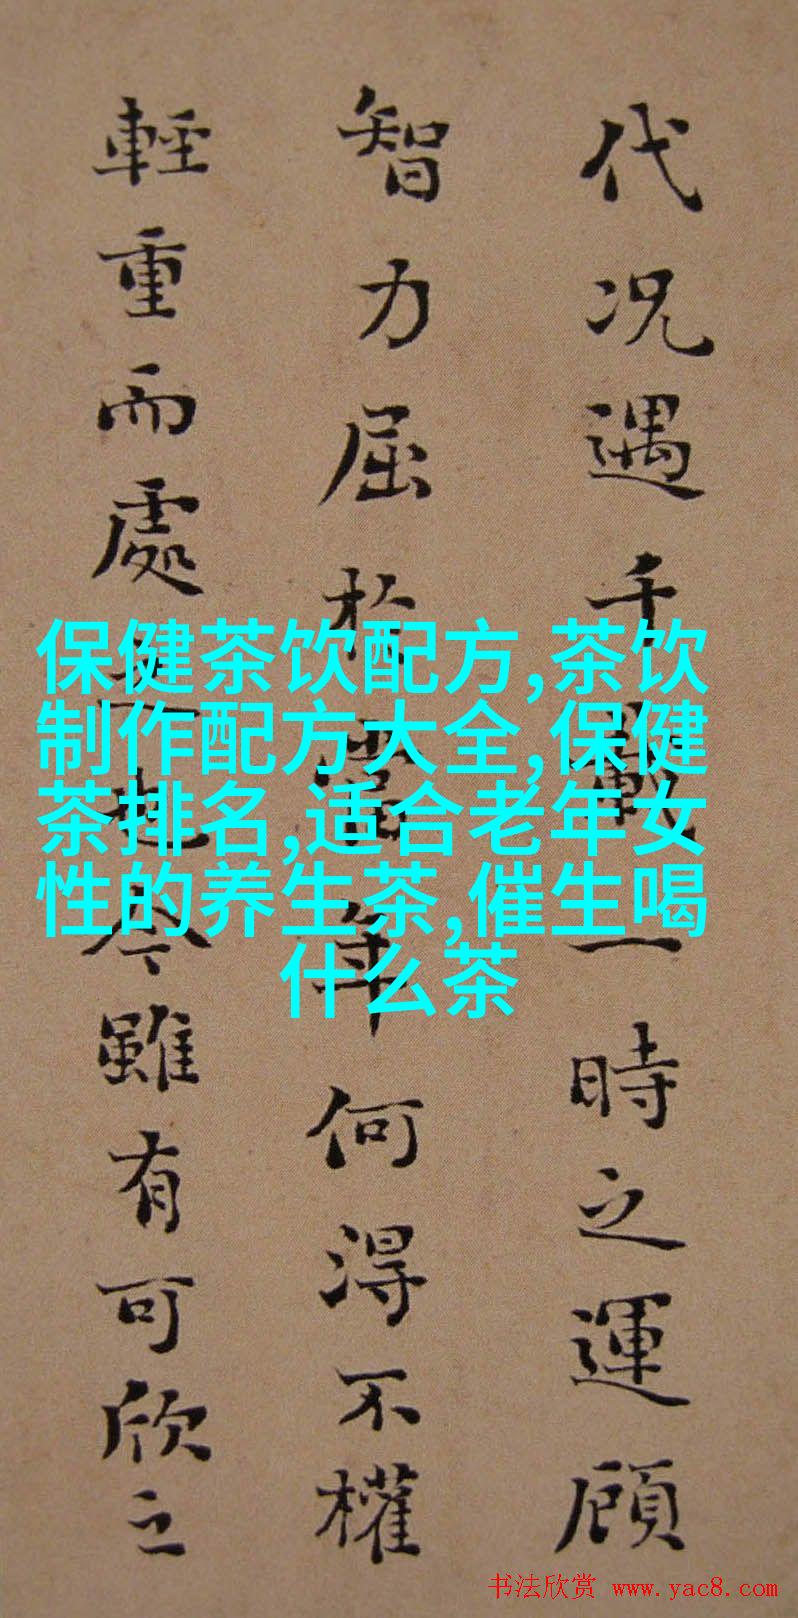 代况遇千載一時之運顧
智力屈於當年何得不權
輕重而處今雖有可欣之
保健茶饮配方,茶饮
制作配方大全,保健
茶排名,适合老年女
性的养生茶,催生喝
什么茶
书法欣赏 www.yac8.com